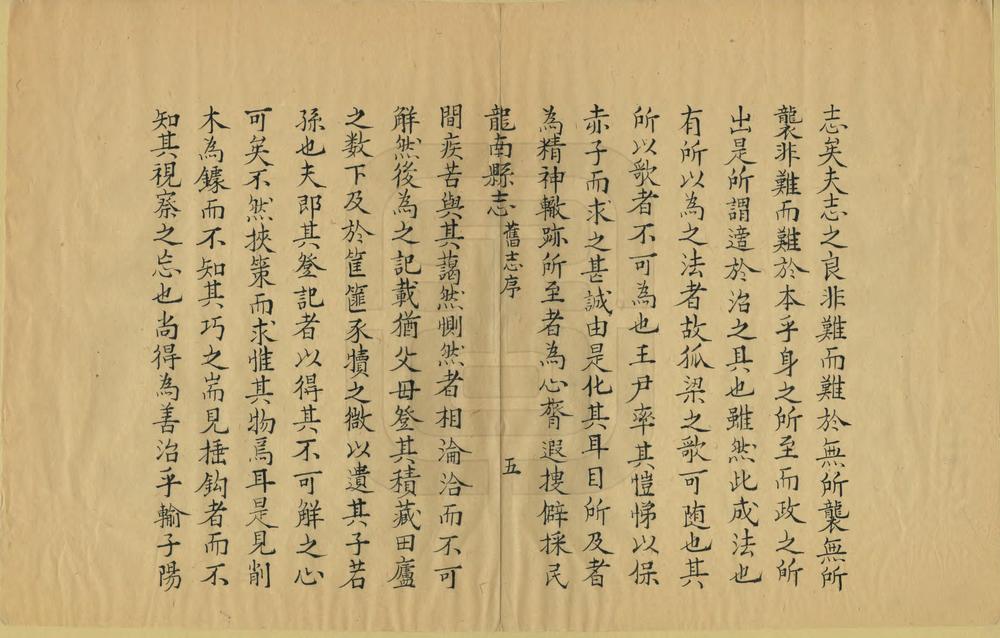 志矣夫志之良非難而難於無所襲無所
襲非難而難於本乎身之所至而政之所
出是所謂適於治之具也雖然此成法也
有所以為之法者故狐梁之歌可随也其
所以歌者不可為也王尹率其愷悌以保
赤子而求之甚誠由是化其耳目所及者
為精神轍跡所至者為心膂遐搜僻採民
龍南縣志 舊志序 五
間疾苦與其藹然惻然者相淪洽而不可
解然後為之記載猶父母登其積藏田廬
之数下及於筐篚豕犢之微以遺其子若
孫也夫即其登記者以得其不可解之心
可矣不然挾策而求惟其物焉耳是見削
木為鐻而不知其巧之耑見捶鈎者而不
知其視察之忘也尚得為善治乎輸子陽